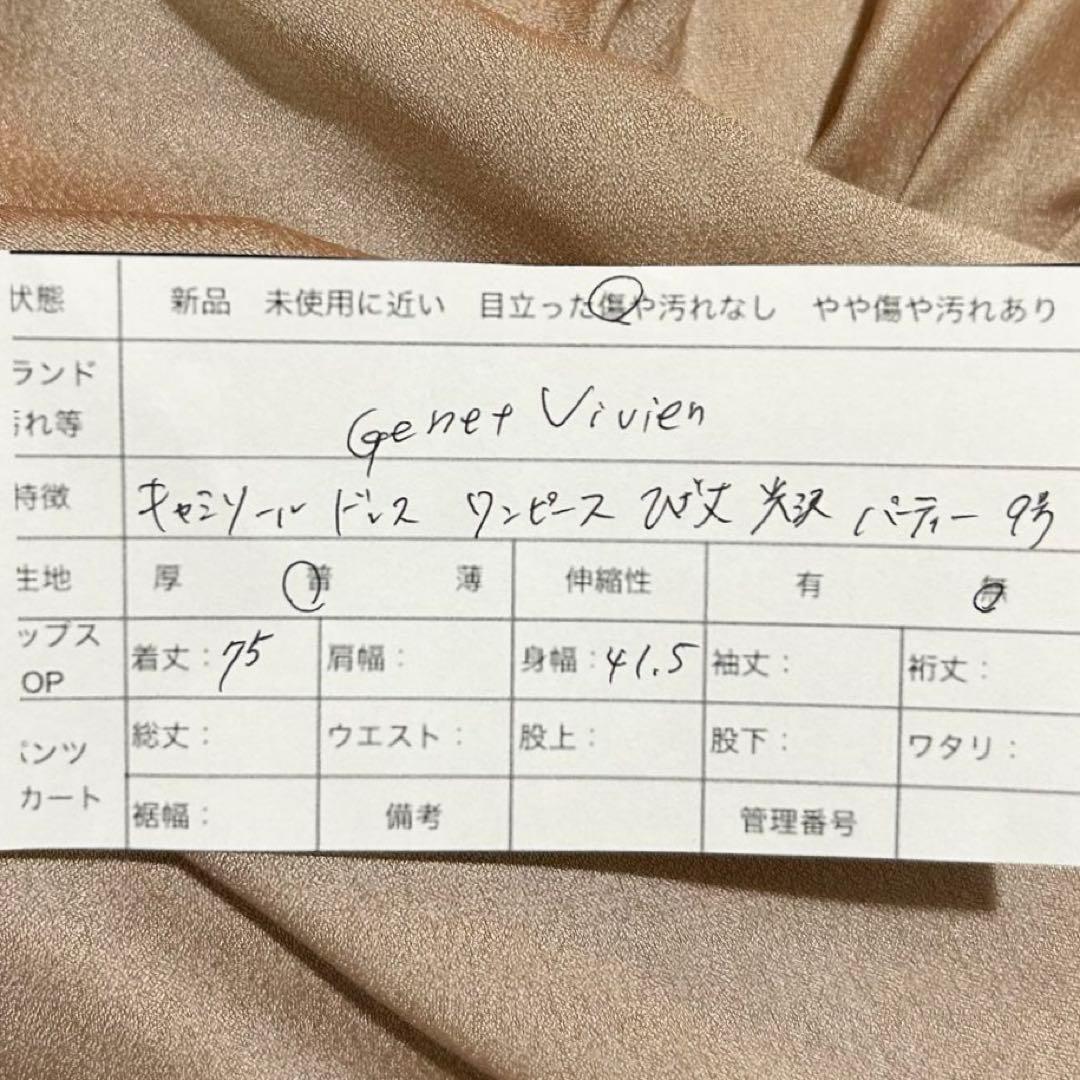 状態 新品 未使用に近い 目立った傷や汚れなし やや傷や汚れあり
ランド
汚れ等 Genet Vivien
特徴 キャミソール ドレス ワンピース ひざ丈 光沢 パーティー 9号
生地 厚 普 薄 伸縮性 有 無
ップス
OP 着丈：75 肩幅： 身幅：41.5 袖丈： 裄丈：
パンツ 総丈： ウエスト： 股上： 股下： ワタリ：
カート 裾幅： 備考 管理番号